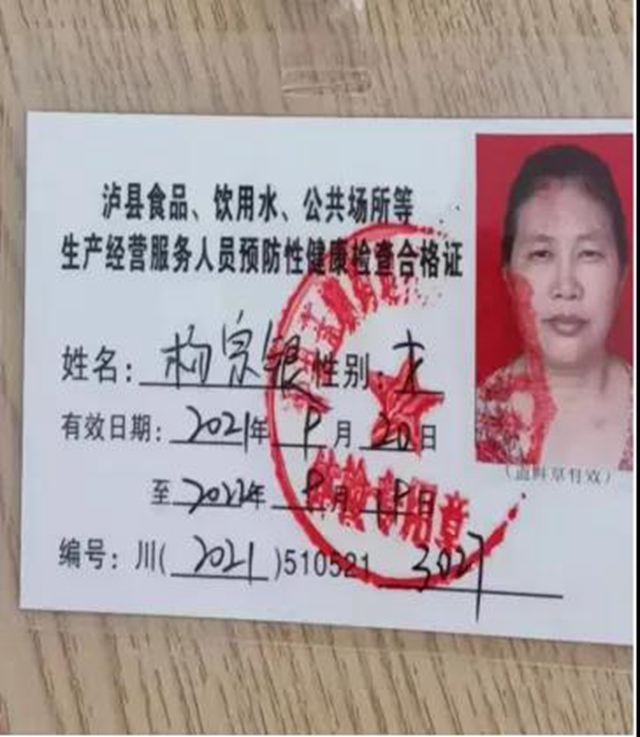 泸县食品、饮用水、公共场所等
生产经营服务人员预防性健康检查合格证
姓名：杨宗银 性别：女
有效日期：2021年 9月 20日
至 2022年 月 日
编号：川(2021)510521 3027
体检专用章
(盖鲜章有效)